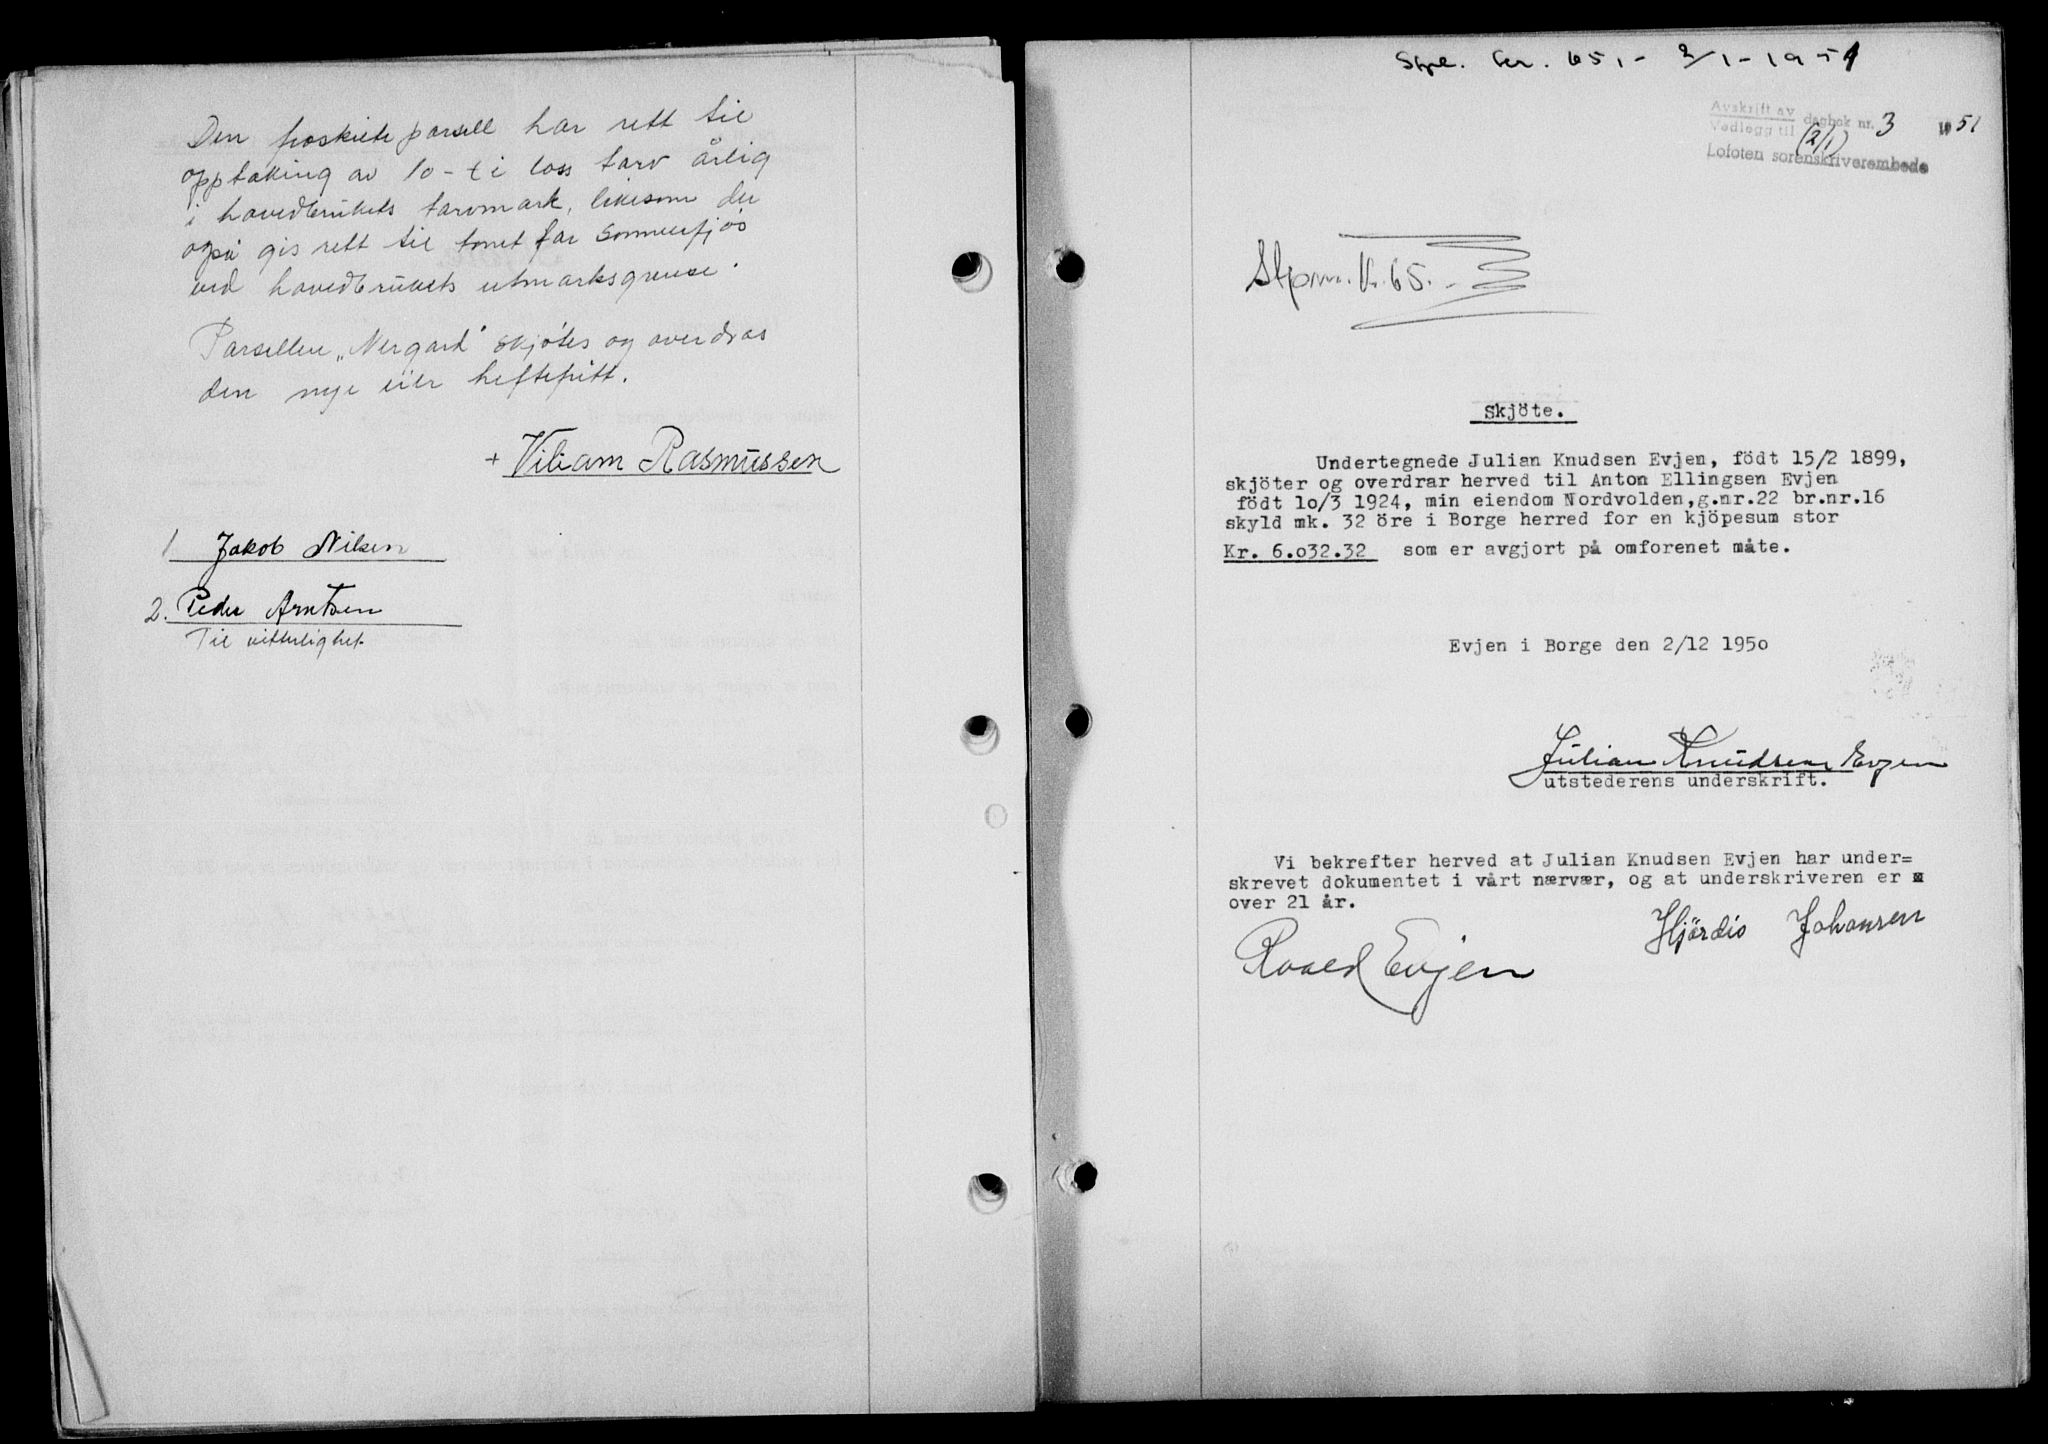 Den fraskilte parsell har rett til
opptaking av 10 - ti lass tarv årlig
i hovedbrukets tarvmark, likesom der
også gis rett til tomt for sommerfjøs
ved hovedbrukets utmarksgrense.
Parsellen „Nergard" skjøtes og overdras
den nye eier heftefritt.
+ Viliam Rasmussen
1 Jakob Nilsen
2. Peder Arntsen
Til vitterlighet
Stpl. kr. 65,- 2/1-1951
Avskrift av
Vedlegg til dagbok nr. 3 1951
(2/1)
Lofoten sorenskriverembede
Stpm. Kr. 65.-
Skjöte.
Undertegnede Julian Knudsen Evjen, födt 15/2 1899,
skjöter og overdrar herved til Anton Ellingsen Evjen
födt 1o/3 1924, min eiendom Nordvolden,g.nr.22 br.nr.16
skyld mk. 32 öre i Borge herred for en kjöpesum stor
Kr. 6.o32.32 som er avgjort på omforenet måte.
Evjen i Borge den 2/12 195o
Julian Knudsen Evjen
utstederens underskrift.
Vi bekrefter herved at Julian Knudsen Evjen har under=
skrevet dokumentet i vårt nærvær, og at underskriveren er
over 21 år.
Hjördis Johansen
Roald Evjen